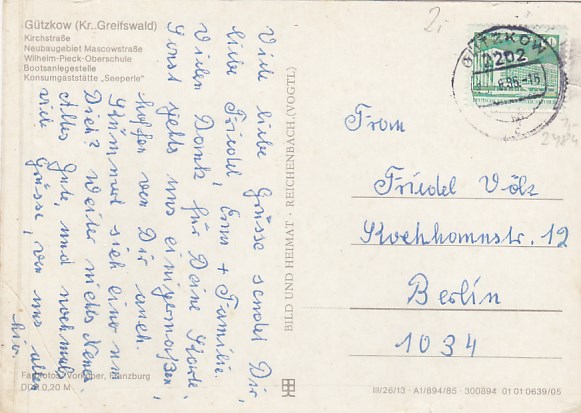 Gützkow (Kr. Greifswald)
Kirchstraße
Neubaugebiet Mascowstraße
Wilhelm-Pieck-Oberschule
Bootsanlegestelle
Konsumgaststätte „Seeperle"
Viele liebe Grüsse sendet Dir,
liebe Friedel, Erna + Familie.
Vielen Dank für Deine Karte.
Sonst gehts uns einigermaßen,
hoffen von Dir auch.
Kümmert sich einer um
Dich? Weiter nichts Neues
Alles Gute, und nochmals
viele Grüsse, von uns allen
hier.
BILD UND HEIMAT · REICHENBACH (VOGTL)
GÜTZKOW
2202
Frau
Friedel Völz
Kochhannstr. 12
Berlin
1034
DDR 0,20 M
III/26/13 · A1/894/85 · 300894 01 01 0639/05